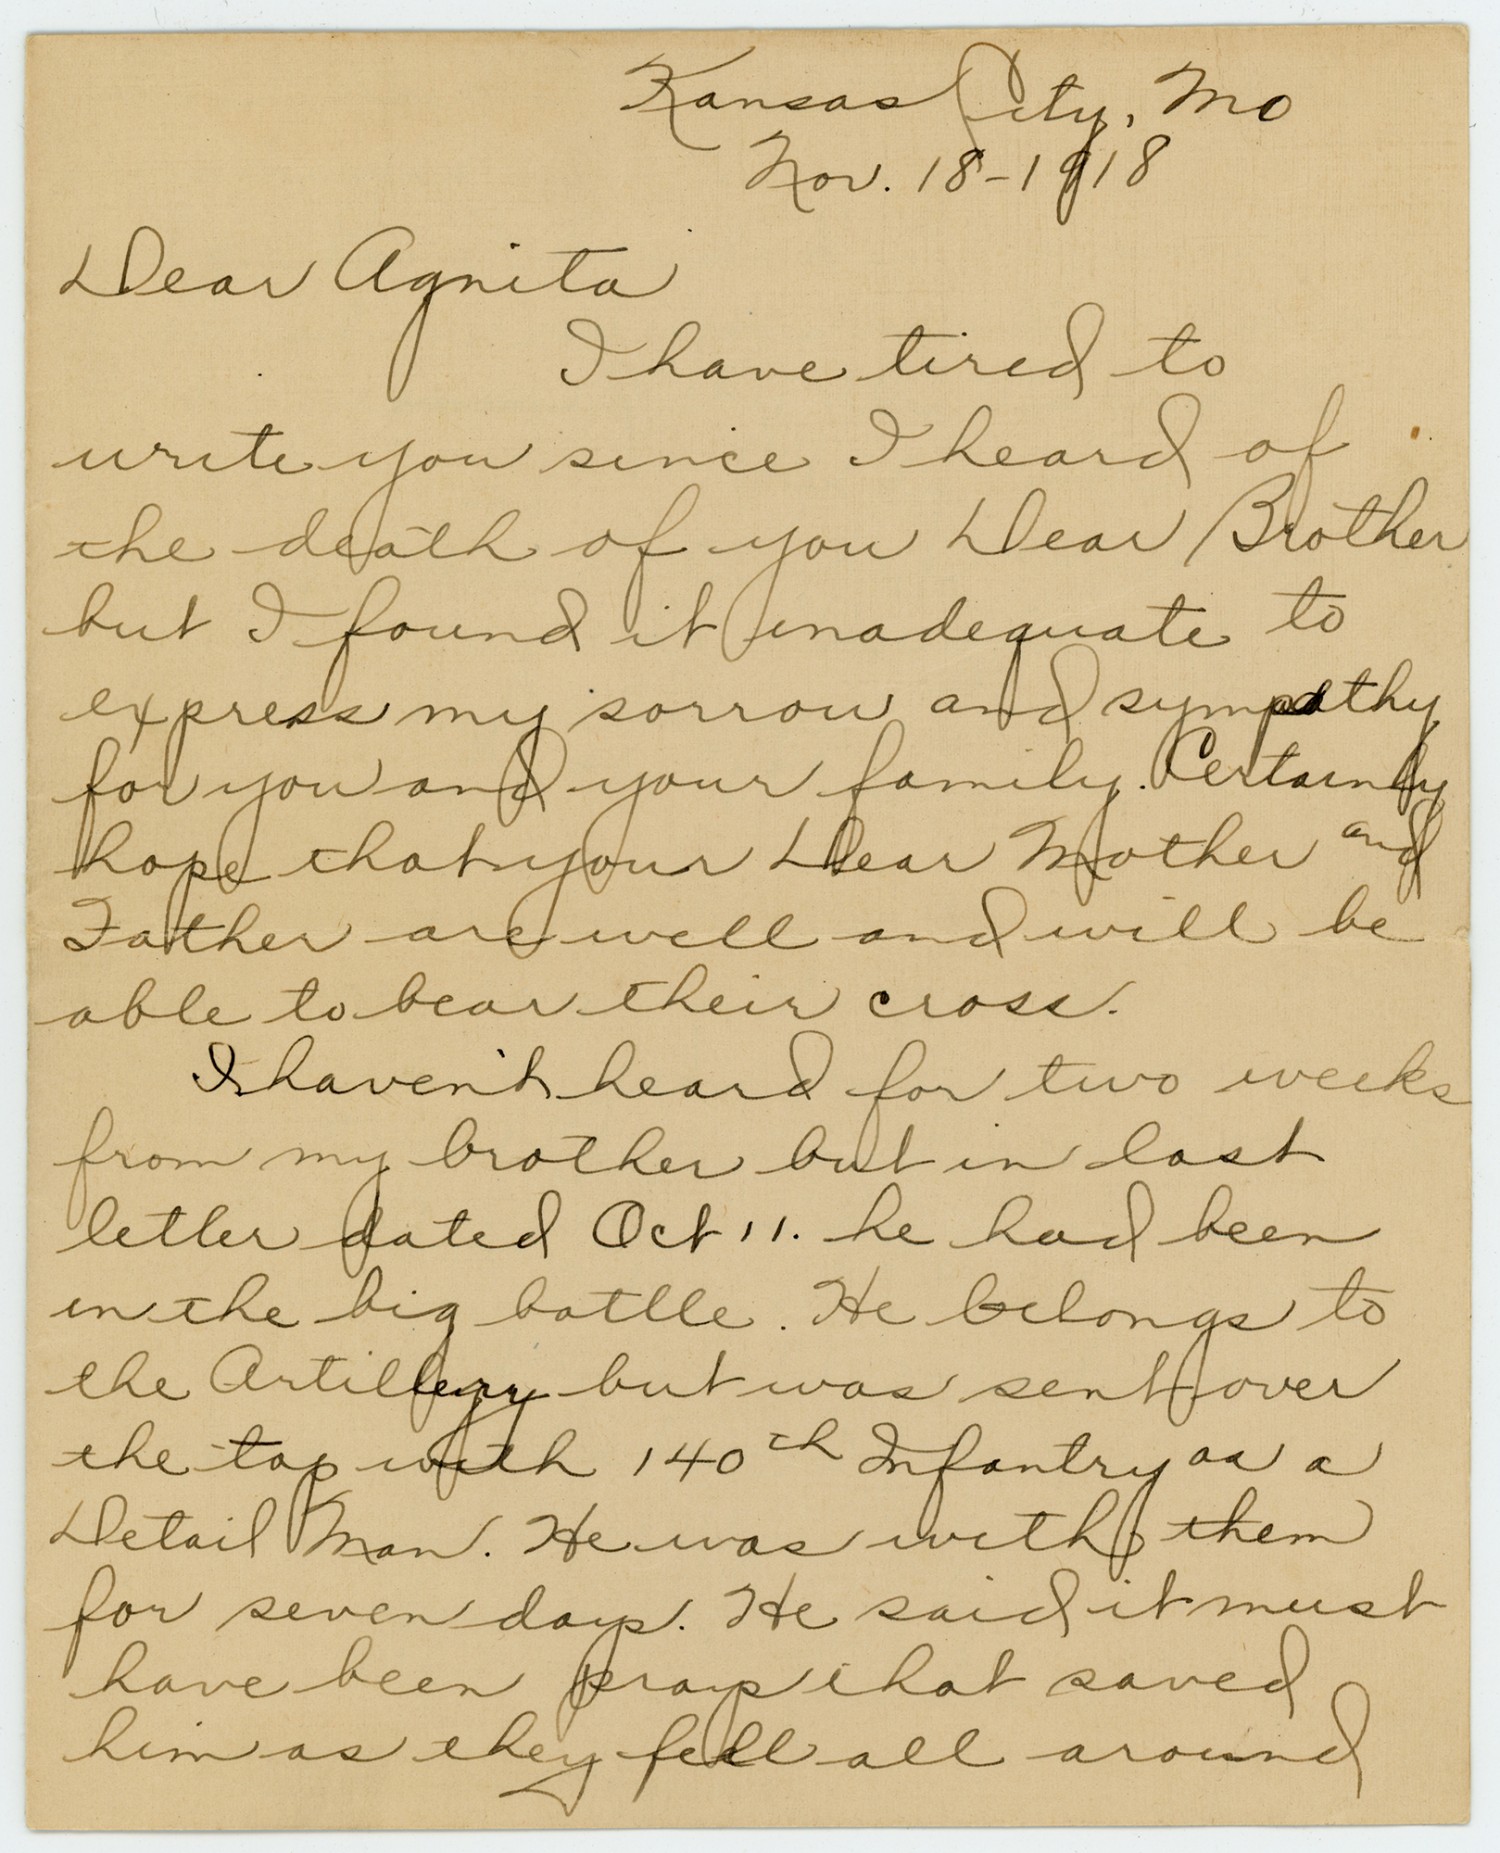 Kansas City, Mo
Nov. 18-1918
Dear Agnita
I have tired to
write you since I heard of
the death of you Dear Brother
but I found it inadequate to
express my sorrow and sympathy
for you and your family. Certainly
hope that your Dear Mother and
Father are well and will be
able to bear their cross.
I haven't heard for two weeks
from my brother but in last
letter dated Oct 11. he had been
in the big battle. He belongs to
the Artillery but was sent over
the top with 140th Infantry as a
Detail Man. He was with them
for seven days. He said it must
have been prays that saved
him as they fell all around